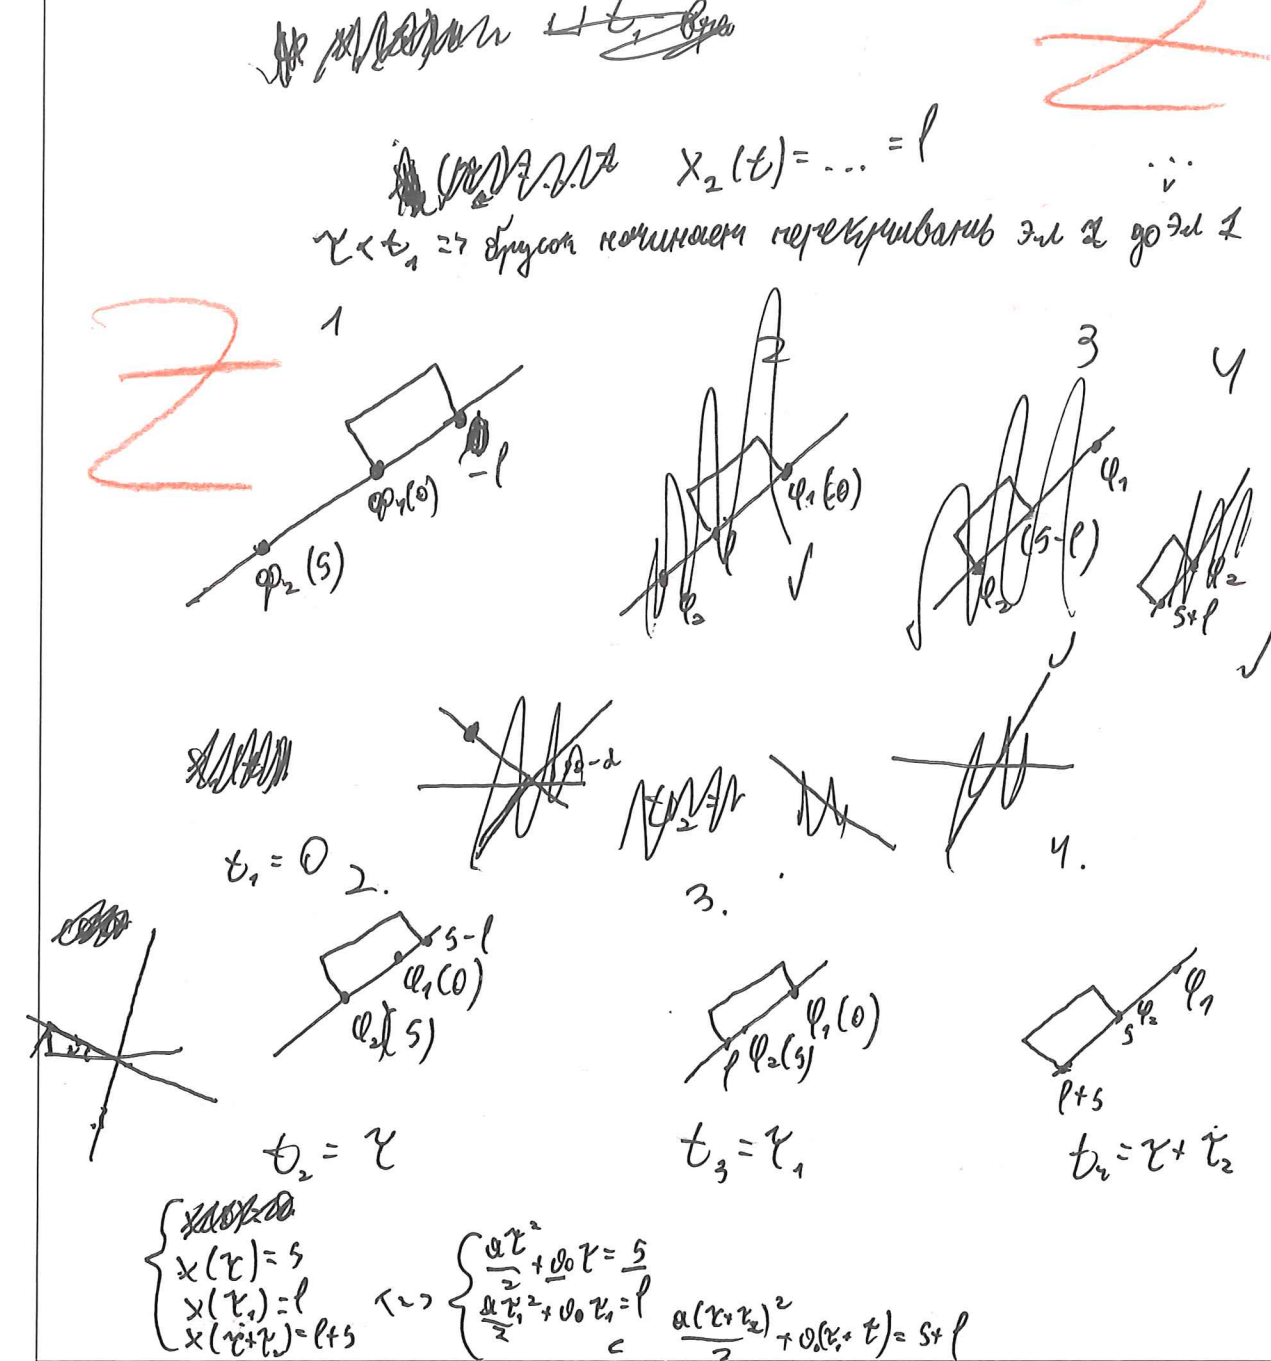 x₂(t) = ... = l
...
τ < t₁ => брусок начинает перекрывать эл 2 до эл 1
1
2
3
4
φ₁(0)
-l
φ₂(s)
φ₁(0)
l
φ₂
φ₁
(s-l)
φ₂
φ₂
s+l
t₁ = 0
2.
3.
4.
s-l
φ₁(0)
φ₂(s)
φ₁(0)
l φ₂(s)
φ₁
s φ₂
l+s
t₂ = τ
t₃ = τ₁
t₄ = τ + τ₂
x(τ) = s
x(τ₁) = l
x(τ+τ₂) = l+s
<=>
aτ²/2 + v₀τ = s
aτ₁²/2 + v₀τ₁ = l